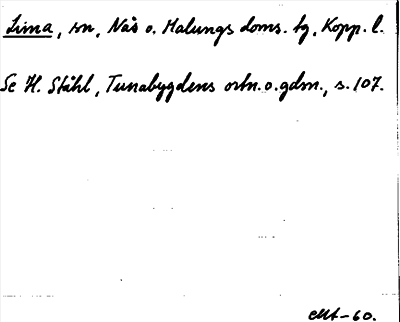 Lima, sn, Nås o. Malungs doms. tg, Kopp. l.
Se H. Ståhl, Tunabygdens ortn. o. gdm., s. 107.
-60.